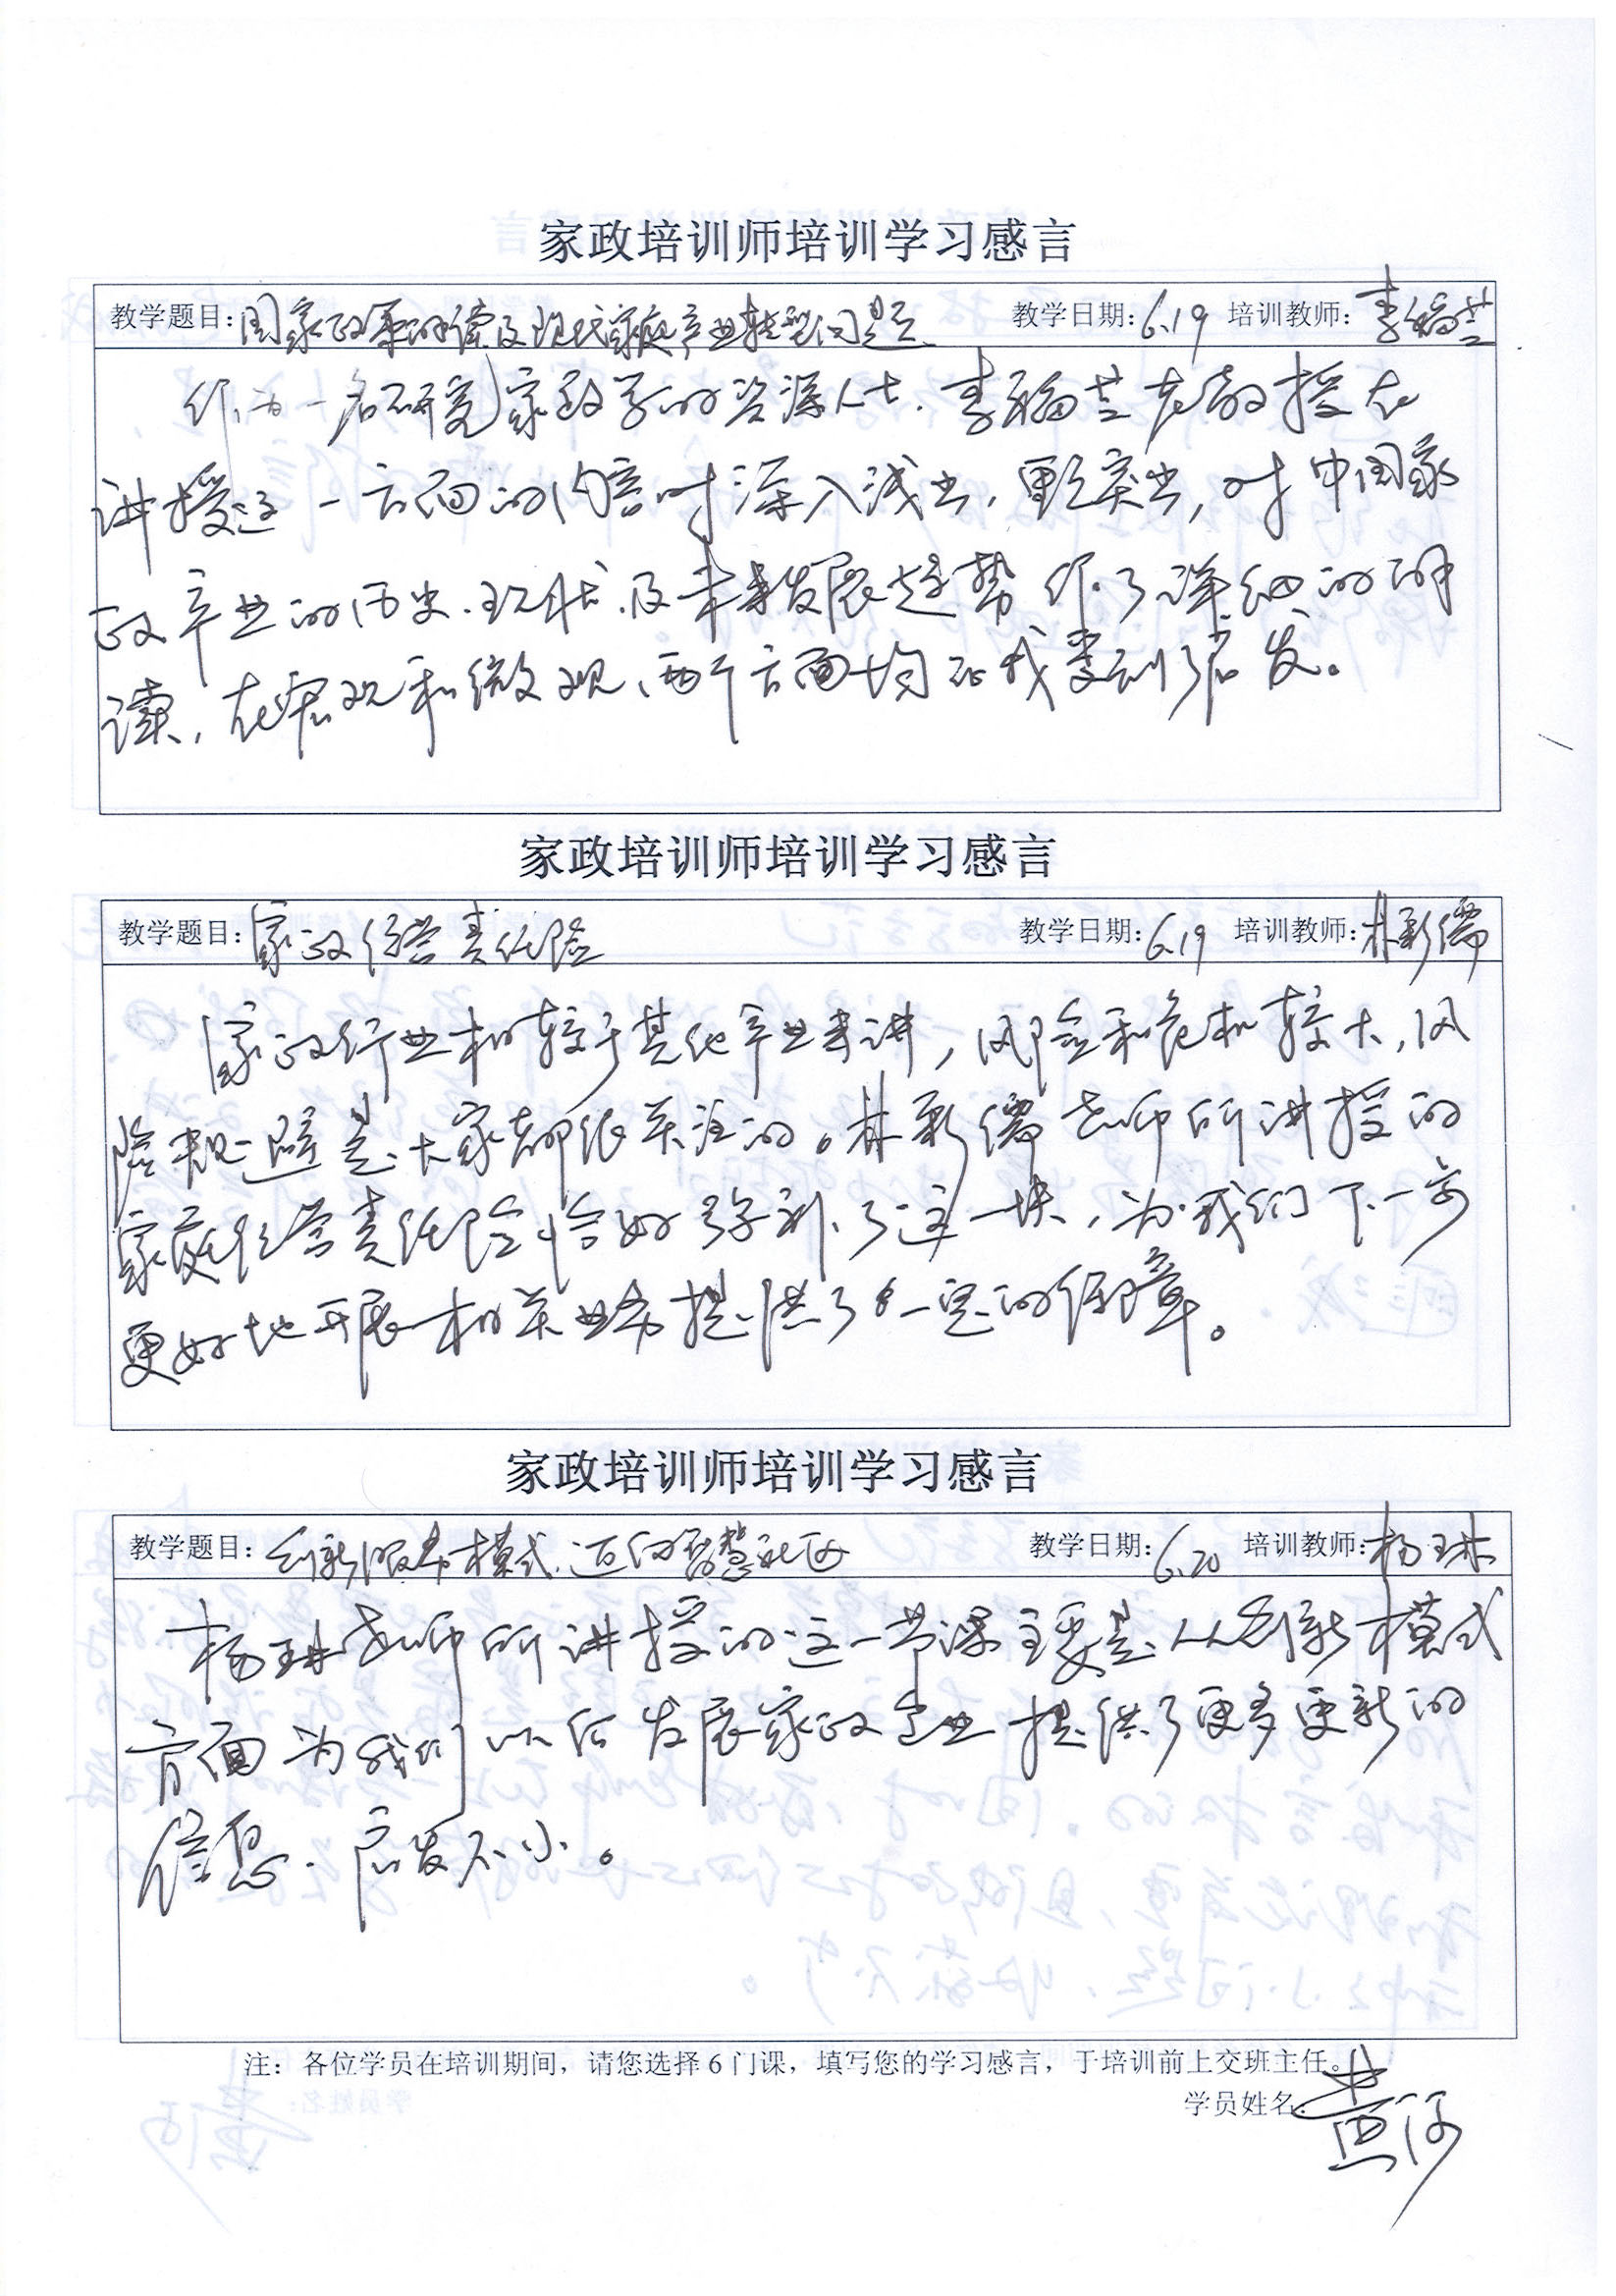 家政培训师培训学习感言
教学题目：国家政策解读及现代家庭产业转型问题 教学日期：6.19 培训教师：李福芸
作为一名研究家政学的资深人士，李福芸老教授在
讲授这一方面的内容时深入浅出，重点突出，对中国家
政产业的历史、现状、及未来发展趋势作了详细的解
读，在宏观和微观、两个方面均让我受到启发。
家政培训师培训学习感言
教学题目：家政经营责任险 教学日期：6.19 培训教师：林彩儒
家政行业相较于其他产业来讲，风险和危机较大，风
险规避是大家都很关注的。林彩儒老师所讲授的
家庭经营责任险恰好弥补了这一块，为我们下一步
更好地开展相关业务提供了一定的保障。
家政培训师培训学习感言
教学题目：创新服务模式，迈向智慧社区 教学日期：6.20 培训教师：杨琳
杨琳老师所讲授的这一节课主要是从创新模式
方面为我们以后发展家政企业提供了更多更新的
信息，启发不小。
注：各位学员在培训期间，请您选择6门课，填写您的学习感言，于培训前上交班主任。
学员姓名：